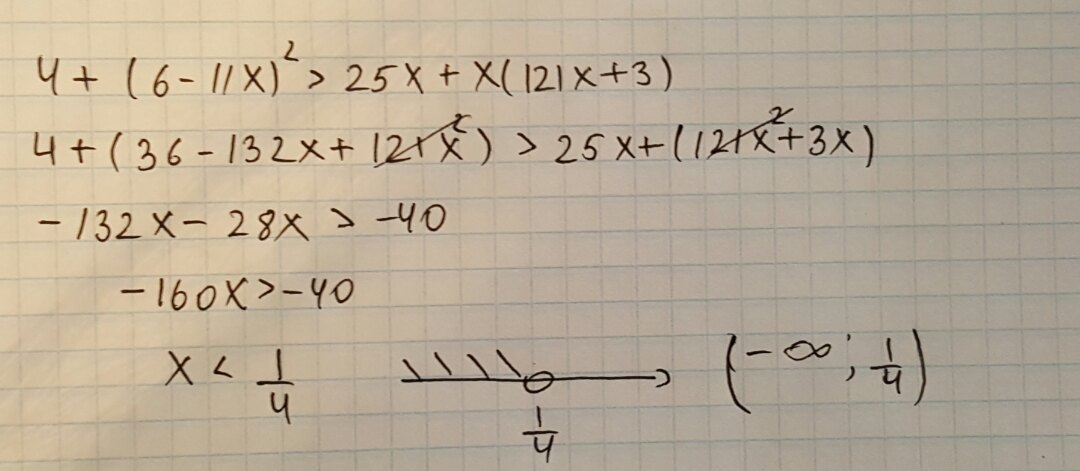 4 + (6 - 11x)² > 25x + x(121x + 3)
4 + (36 - 132x + 121x²) > 25x + (121x² + 3x)
- 132x - 28x > -40
- 160x > -40
x < 1/4 (-∞; 1/4)
1/4